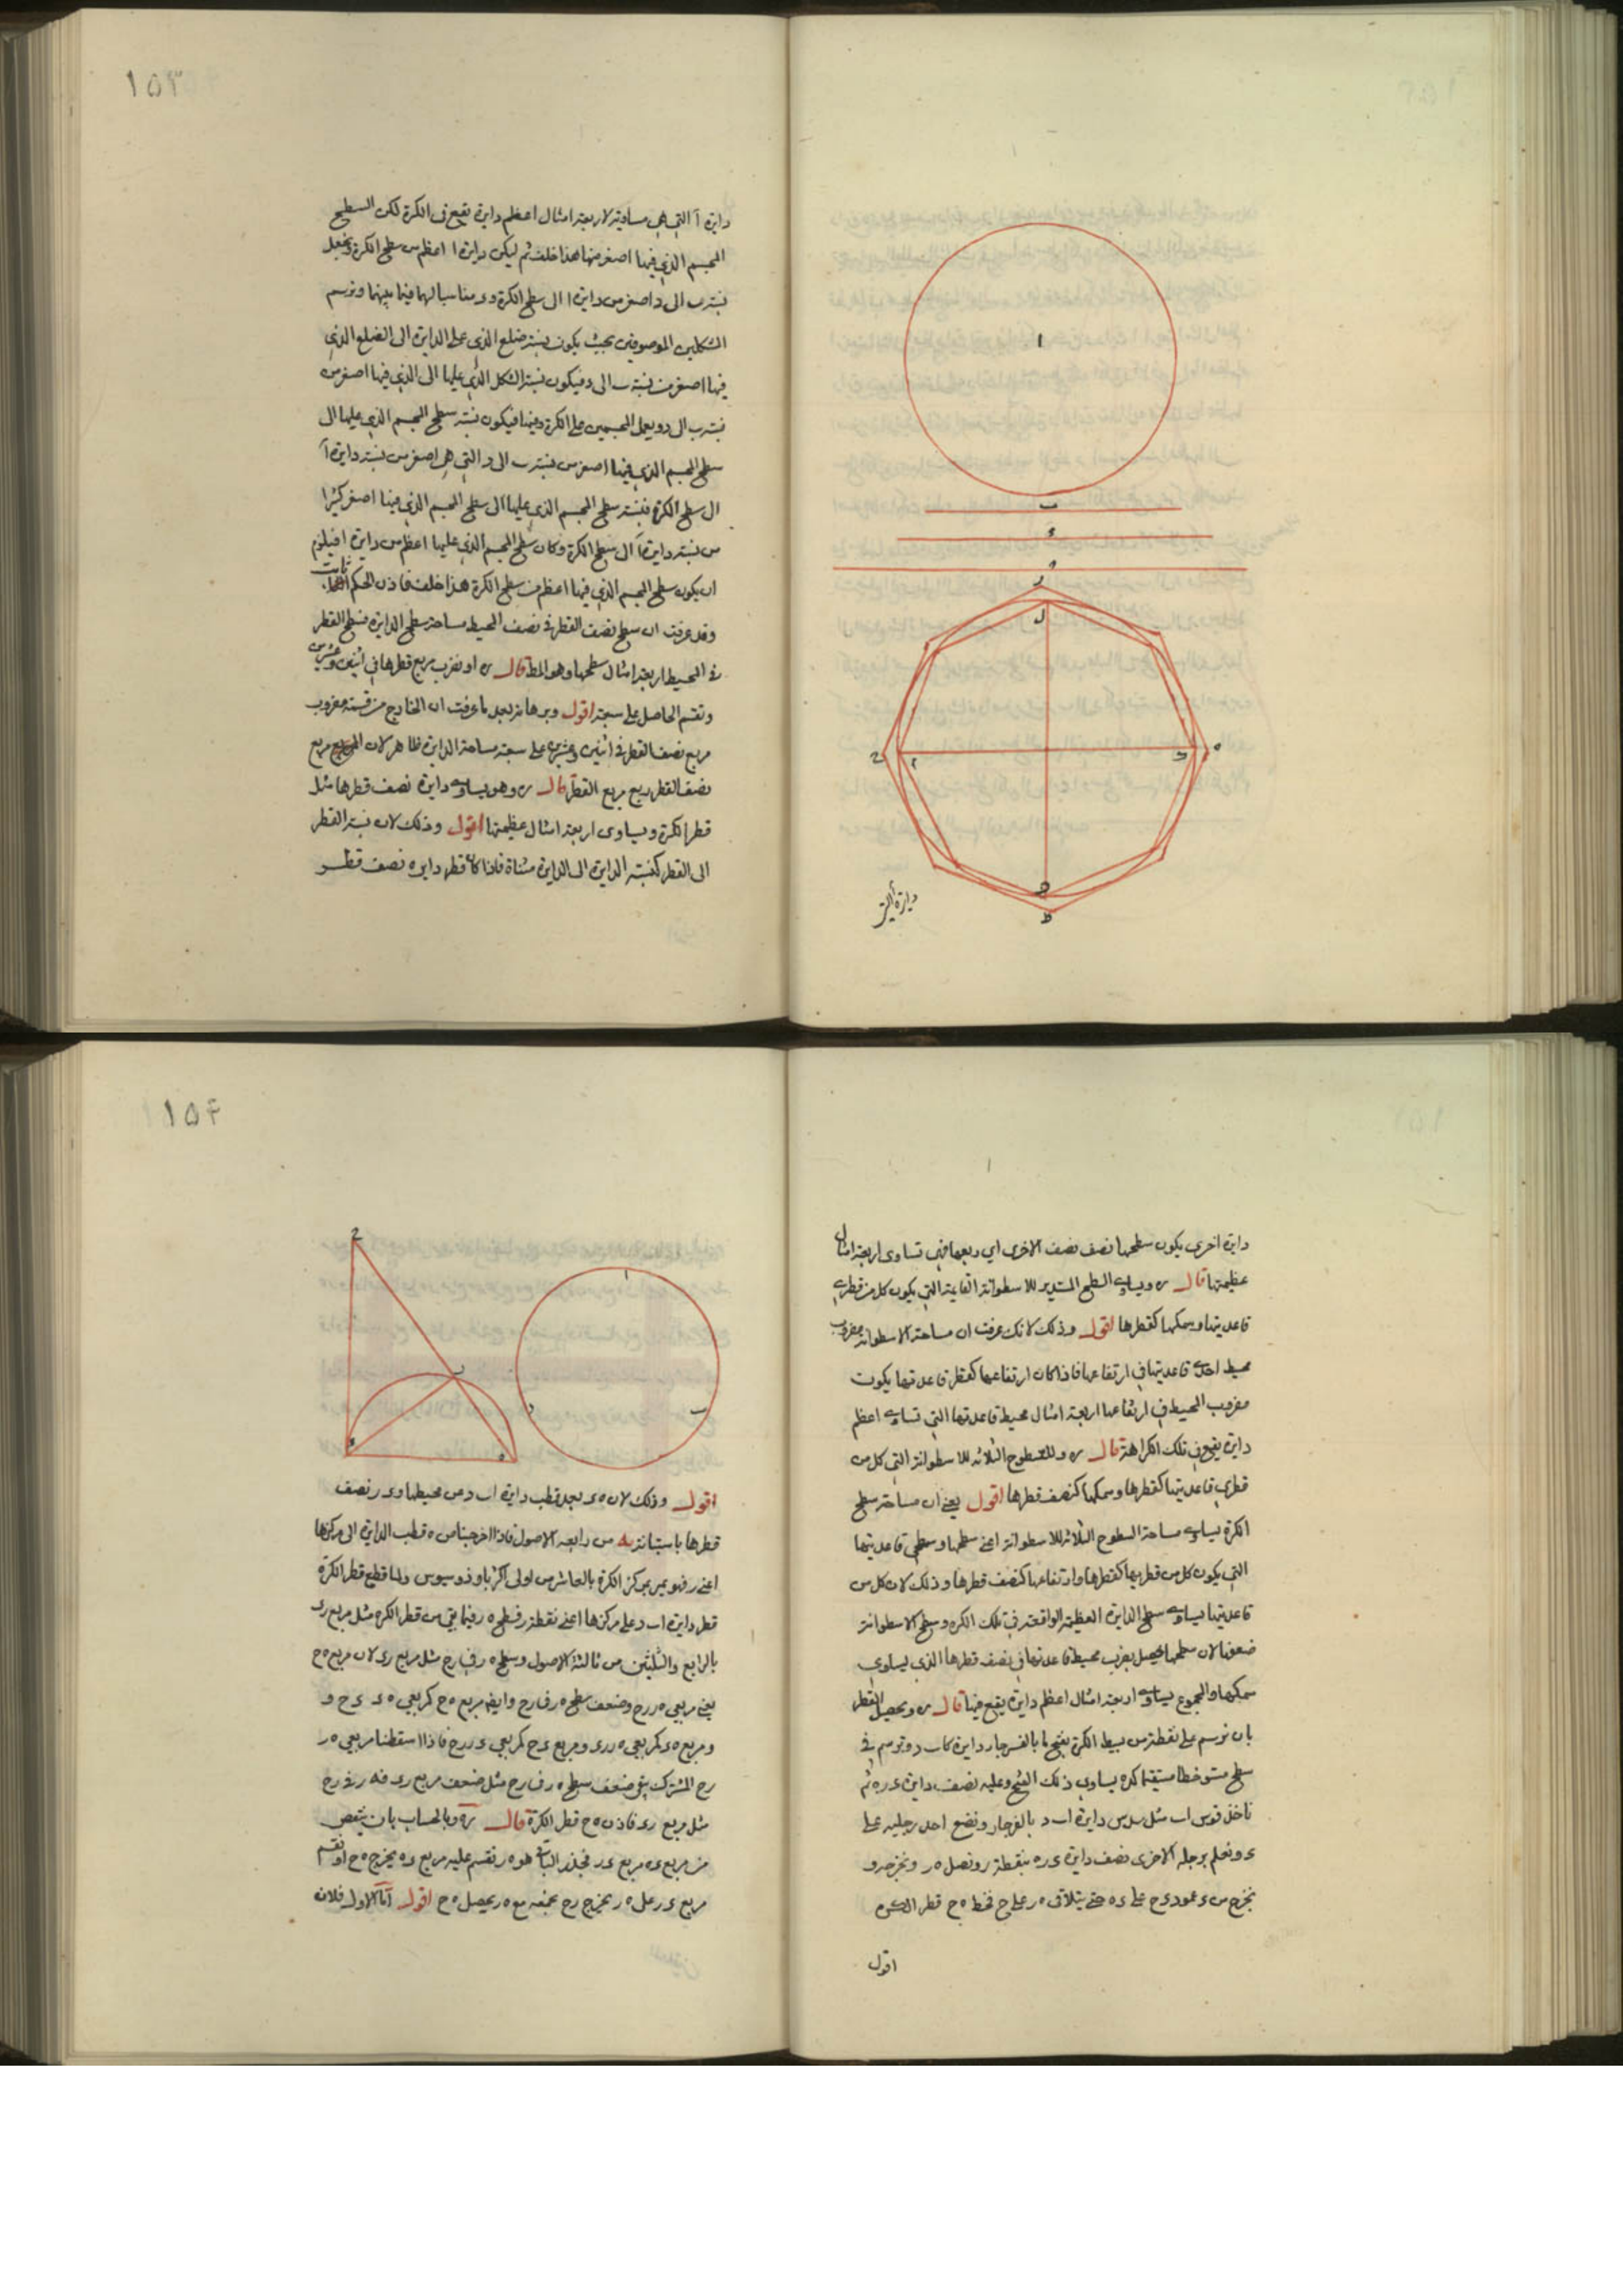 ١٥٣
ا
ب
د
ه
ز
ل
ح
م
ك
ه
ط
دايرة آ التى
دايرة آ التى هى مساوية لاربعة امثال اعظم دايرة تقع فى الكرة لكن السطح
المجسم الذى فيها اصغر منها هذا خلف ثم ليكن دايرة ا اعظم من سطح الكرة ونجعل
نسبة ب الى د اصغر من دايرة ا الى سطح الكرة و مناسبا لهما فيما بينهما ونرسم
الشكلين الموصوفين بحيث يكون نسبة ضلع الذى على الدايرة الى الضلع الذى
فيها اصغر من نسبة ب الى و فيكون نسبة الشكل الذى عليها الى الذى فيها اصغر من
نسبة ب الى د ويعمل المجسمين على الكرة وفيها فيكون نسبة سطح المجسم الذى عليها الى
سطح المجسم الذى فيها اصغر من نسبة ب الى د التى هى اصغر من نسبة دايرة آ
الى سطح الكرة فنسبة سطح المجسم الذى عليها الى سطح المجسم الذى فيها اصغر كثيرا
من نسبة دايرة آ الى سطح الكرة وكان سطح المجسم الذى عليها اعظم من دايرة ا فيلزم
ان يكون سطح المجسم الذى فيها اعظم من سطح الكرة هذا خلف فاذن الحكم ثابت
وقد عرفت ان سطح نصف القطر فى نصف المحيط مساحة سطح الدايرة فسطح القطر
فى المحيط اربعة امثال سطحها وهو المط قال ره او نضرب مربع قطرها فى اثنين وعشرين
ونقسم الحاصل على سبعة اقول وبرهانه بعد ما عرفت ان الخارج من قسمة مضروب
مربع نصف القطر فى اثنين وعشرين على سبعة مساحة الدايرة ظاهر لان مربع
نصف القطر ربع مربع القطر قال ره وهو يساوى دايرة نصف قطرها مثل
قطر الكرة ويساوى اربعة امثال عظيمتها اقول وذلك لان نسبة القطر
الى القطر كنسبة الدايرة الى الدايرة مثناة فاذا كان قطر دايرة نصف قطر
١٥٤
دايرة اخرى يكون سطحها نصف نصف الاخرى اى ربعها فهى تساوى اربعة امثال
عظيمتها قال ره ويساوى السطح المستدير للاسطوانة القايمة التى يكون كل من قطرى
قاعدتيها وسمكها كقطرها اقول وذلك لانك عرفت ان مساحة الاسطوانة مضروب
محيط احدى قاعدتيها فى ارتفاعها فاذا كان ارتفاعها كقطر قاعدتها يكون
مضروب المحيط فى ارتفاعها اربعة امثال محيط قاعدتها التى تساوى اعظم
دايرة تقع فى تلك الكرة قال ره وللسطوح الثلاثة للاسطوانة التى كل من
قطرى قاعدتيها كقطرها وسمكها كنصف قطرها اقول يعنى ان مساحة سطح
الكرة يساوى مساحة السطوح الثلاثة للاسطوانة اعنى سطحها وسطحى قاعدتيها
التى يكون كل من قطريهما كقطرها وارتفاعها كنصف قطرها وذلك لان كل من
قاعدتيها يساوى سطح الدايرة العظيمة الواقعة فى تلك الكرة وسطح الاسطوانة
ضعفها لان سطحها يحصل بضرب محيط قاعدتها فى نصف قطرها الذى يساوى
سمكها والمجموع يساوى اربعة امثال اعظم دايرة يقع فيها قال ره وتحصيل القطر
بان نرسم على نقطة من بسيط الكرة بفتح ما بالفرجار دايرة كاب د ونرسم فى
سطح مستو خطا مستقيما كده يساوى ذلك الفتح وعليه نصف دايرة دره ثم
ناخذ قوس اب مثل سدس دايرة اب د بالفرجار ونضع احد رجليه على
د ونعلم برجله الاخرى نصف دايرة دره بنقطة ر ونصل ه ر ونخرجه و
نخرج من د عمود د ح على ده حتى يتلاقى ه ر على ح فخط ه ح قطر الكرة
اقول
ح
ر
د
ه
ا
ب
د
اقول وذلك لان ه د بعد قطب دايرة اب د من محيطها و د ر نصف
قطرها باستبانة يه من رابعة الاصول فاذا اخرجنا من ه قطب الدايرة الى مركزها
اعنى ر فهو يمر بمركز الكرة بالعاشر من اولى اكر ثاوذوسيوس ولما قطع قطر الكرة
قطر دايرة اب د على مركزها اعنى نقطة ر فسطح ه ر فيما بقى من قطر الكرة مثل مربع ر د
بالرابع والثلثين من ثالثة الاصول وسطح ه ر فى ر ح مثل مربع ر د لان مربع ه ح
يعنى مربعى ه ر ر ح وضعف سطح ه ر فى ر ح وايضا مربع ه ح كمربعى ه د د ح و
ومربع ه د كمربعى ه ر ر د ومربع د ح كمربعى د ر ر ح فاذا اسقطنا مربعى ه ر
ر ح المشترك بقى ضعف سطح ه ر فى ر ح مثل ضعف مربع ر د فه ر فى ر ح
مثل مربع ر د فاذن ه ح قطر الكرة قال ره وبالحساب بان ينقص
من مربع د ه مربع د ر فجذر الباقى هو ه ر نقسم عليه مربع د ه يخرج ه ح او نقسم
مربع د ر على ه ر يخرج ر ح نجمعه مع ه ر يحصل ه ح اقول اما الاول فلان